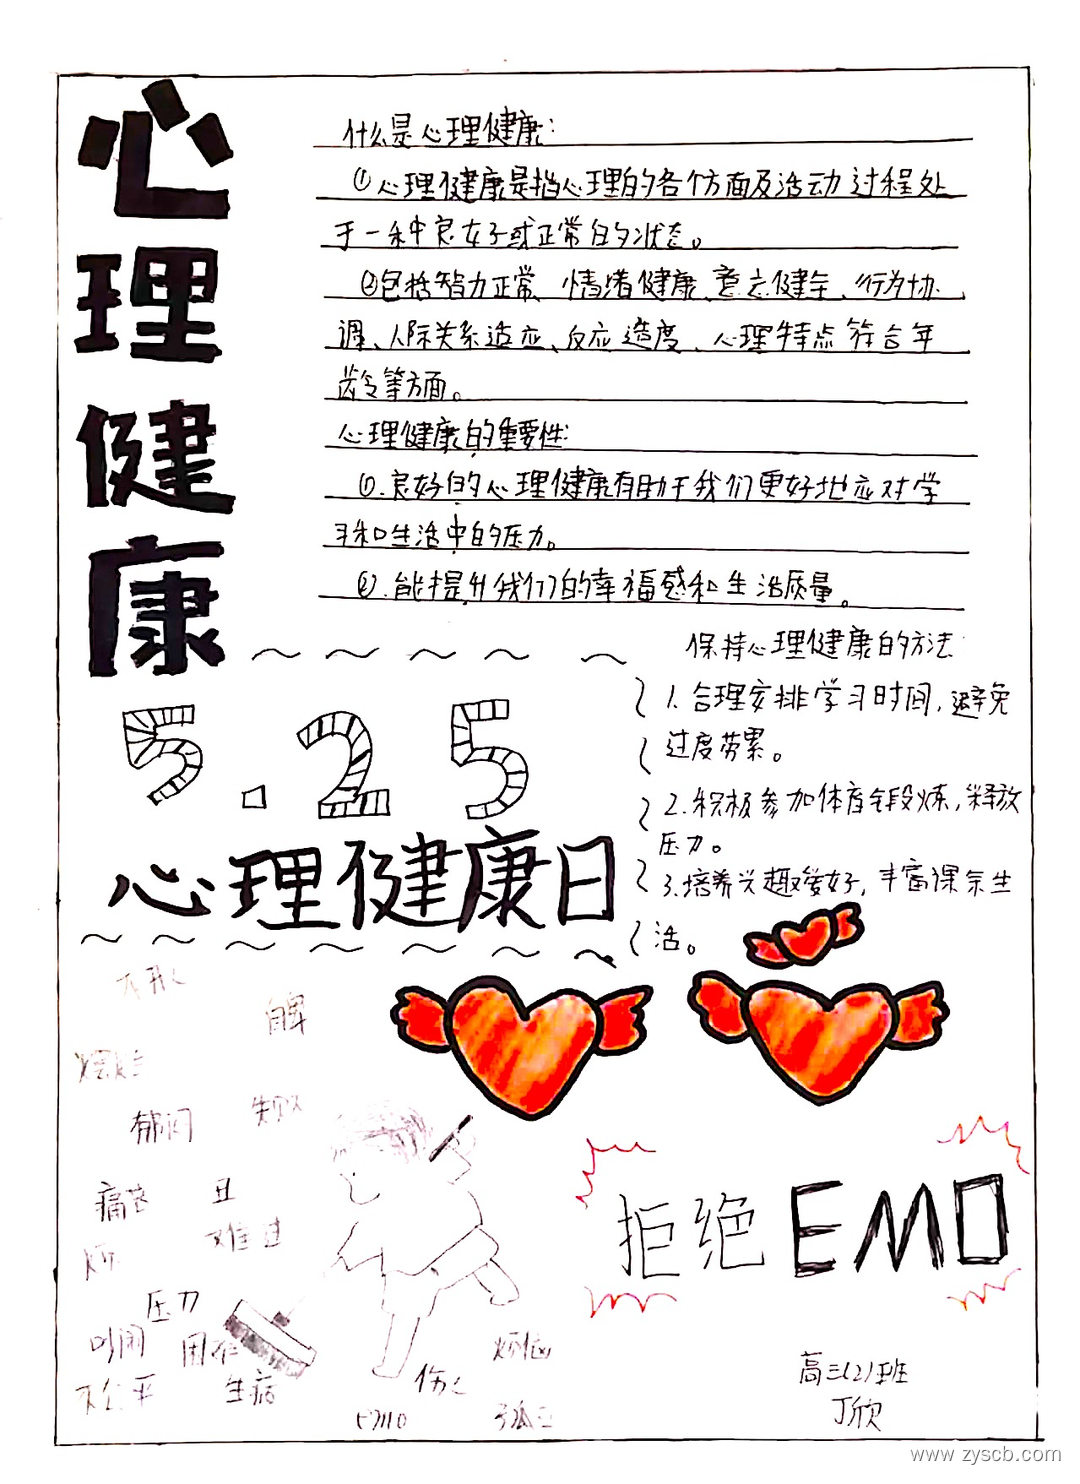 心理健康
什么是心理健康:
①心理健康是指心理的各个方面及活动过程处
于一种良好或正常的状态。
②包括智力正常、情绪健康、意志健全、行为协
调、人际关系适应、反应适度、心理特点符合年
龄等方面。
心理健康的重要性:
①.良好的心理健康有助于我们更好地应对学
习和生活中的压力。
②.能提升我们的幸福感和生活质量。
保持心理健康的方法:
1.合理安排学习时间,避免
过度劳累。
2.积极参加体育锻炼,释放
压力。
3.培养兴趣爱好,丰富课余生
活。
5.25
心理健康日
郁闷
失败
痛苦
丑
难过
压力
不公平
生病
烦恼
拒绝EMO
高三(2)班
丁欣
www.zyscb.com